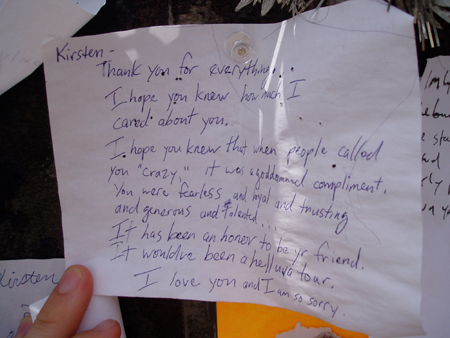 Kirsten -
Thank you for everything...
I hope you knew how much I
cared about you.
I hope you knew that when people called
you "crazy," it was a goddamned compliment.
You were fearless and loyal and trusting
and generous and talented...
It has been an honor to be yr friend.
It would've been a helluva tour.
I love you and I am so sorry.
Kirsten